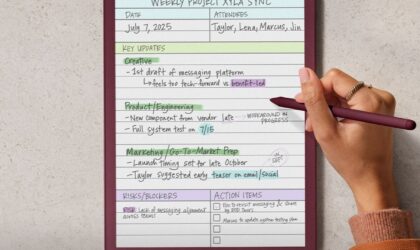 WEEKLY PROJECT XYLA SYNC
DATE
ATTENDEES
July 7, 2025
Taylor, Lena, Marcus, Jin
KEY UPDATES
Creative
- 1st draft of messaging platform
↳ feels too tech-forward vs benefit-led
Product/Engineering
- New component from vendor late
- WORKAROUND IN
PROGRESS
- Full system test on 7/15
Marketing/Go-To-Market Prep
- Launch timing set for late October
- Taylor suggested early teaser on email/social
RISKS/BLOCKERS
ACTION ITEMS
RISK: Lack of messaging alignment
across teams
to revisit messaging & share
Marcus to update system testing plan